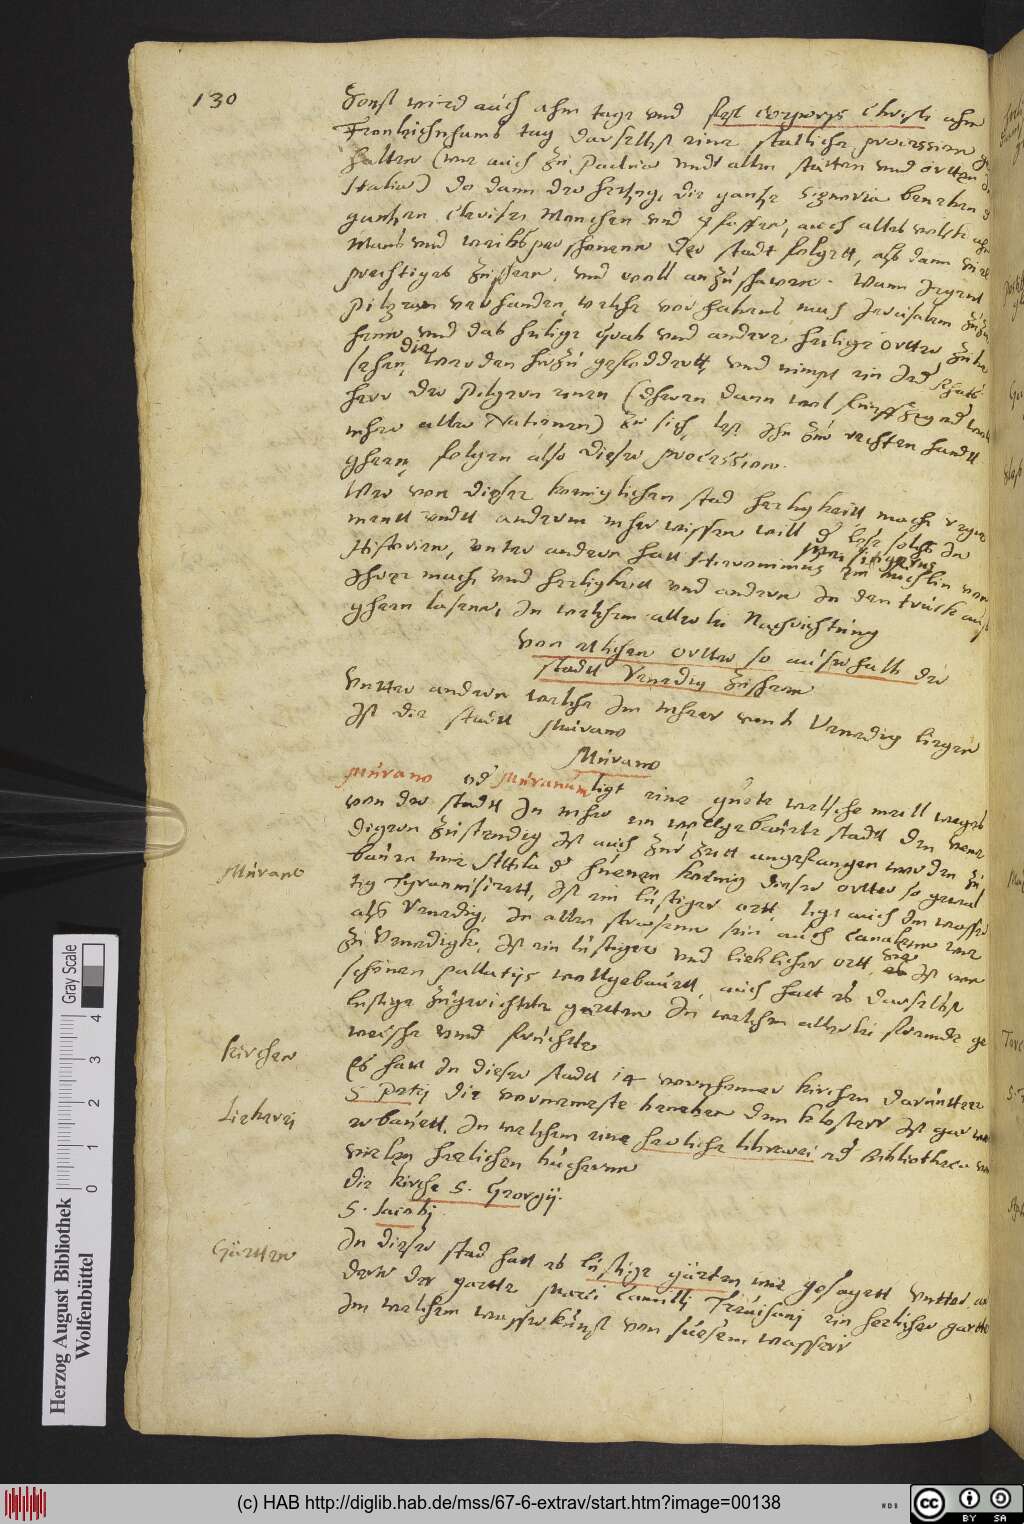 130
Sonst wird auch ahm tage und fest corporis Christi ahm
Fronleichnhams tag daselbst eine stattliche procession
halten (wie auch zu Padua undt allen stätten und örtten
Italiae) do dann der hertzog, die gantze Signoria beneben
gantzen Clerisei Monchen und Pfaffen, auch alles volck
Mans und weibspershonenn der stadt folgett, alß dann
prechtiges zusehen, und woll anzuschawen. Wann Jegent
Pilgram verhanden, welche vorhabens nach Jerusalem
und das heilige Grab und andere heilige örtter zube
sehen, die werden herzu gefoddertt, und nimpt ein Jed
herr der Pilgern einen (dheren dann
mher aller Nationen) zu sich, lest Ihn zur rechten handt
ghenn folgen also dieser procession.
Wer von dieser koeniglichen stad herligkeitt
undt anderm mher wissen will d lese solchs In
Historien, unter andern hatt Hieronimus
Ihrer macht und herligkeitt und andern In den truck
ghenn lasenn, In welchem allerlei Nachrichtung
Von etlichen ortter so auserhalb der
stadtt Venedig zusehenn
Untter andern welche Im Mheer umb Venedig liegen
Ist die stadtt Murano
Murano
Murano od Muranum ligt eine gute welsche meil weges
von der stadtt In mher ein wollgebauete stadtt den Vene
digern zustendig Ist auch zur zeitt angefangen worden zu
bauen wie Attila d hunen koenig dieser ortter so gewal
tig Tyrannisirett, Ist ein lustiger ortt, ligt auch Im wasser
alß Venedig, In allen strasenn sein auch Canalenn wie
zu Venedigk, Ist ein lustiger und lieblicher ortt, Ist von
schönen pallatijs wollgebauett, auch hatt es daselbst
lustige zugerichtete gertten In welchem allerlei fremde ge
wechse unnd fruchtte
Es hatt In dieser stadtt 14 vornhemer kirchen daruntter
S. Petrj die vornemeste beneben dem klosterr Ist gar
erbauett, In welchem eine herliche libererei od Bibliotheca
vielen herlichen büchernn
Die kirche S. Georgij.
S. Jacobj
In dieser stad hatt es lustige gärten wie gesagett untter
denn der gartte Marci Camilli Treuisanj ein herlicher gartte
Im welchem wasserkunst von süesem wasserr
Murano
Kirchen
Lieberei
Gärtten
Gray Scale
0 1 2 3 4
Herzog August Bibliothek
Wolfenbüttel
(c) HAB http://diglib.hab.de/mss/67-6-extrav/start.htm?image=00138
WDB
cc BY SA